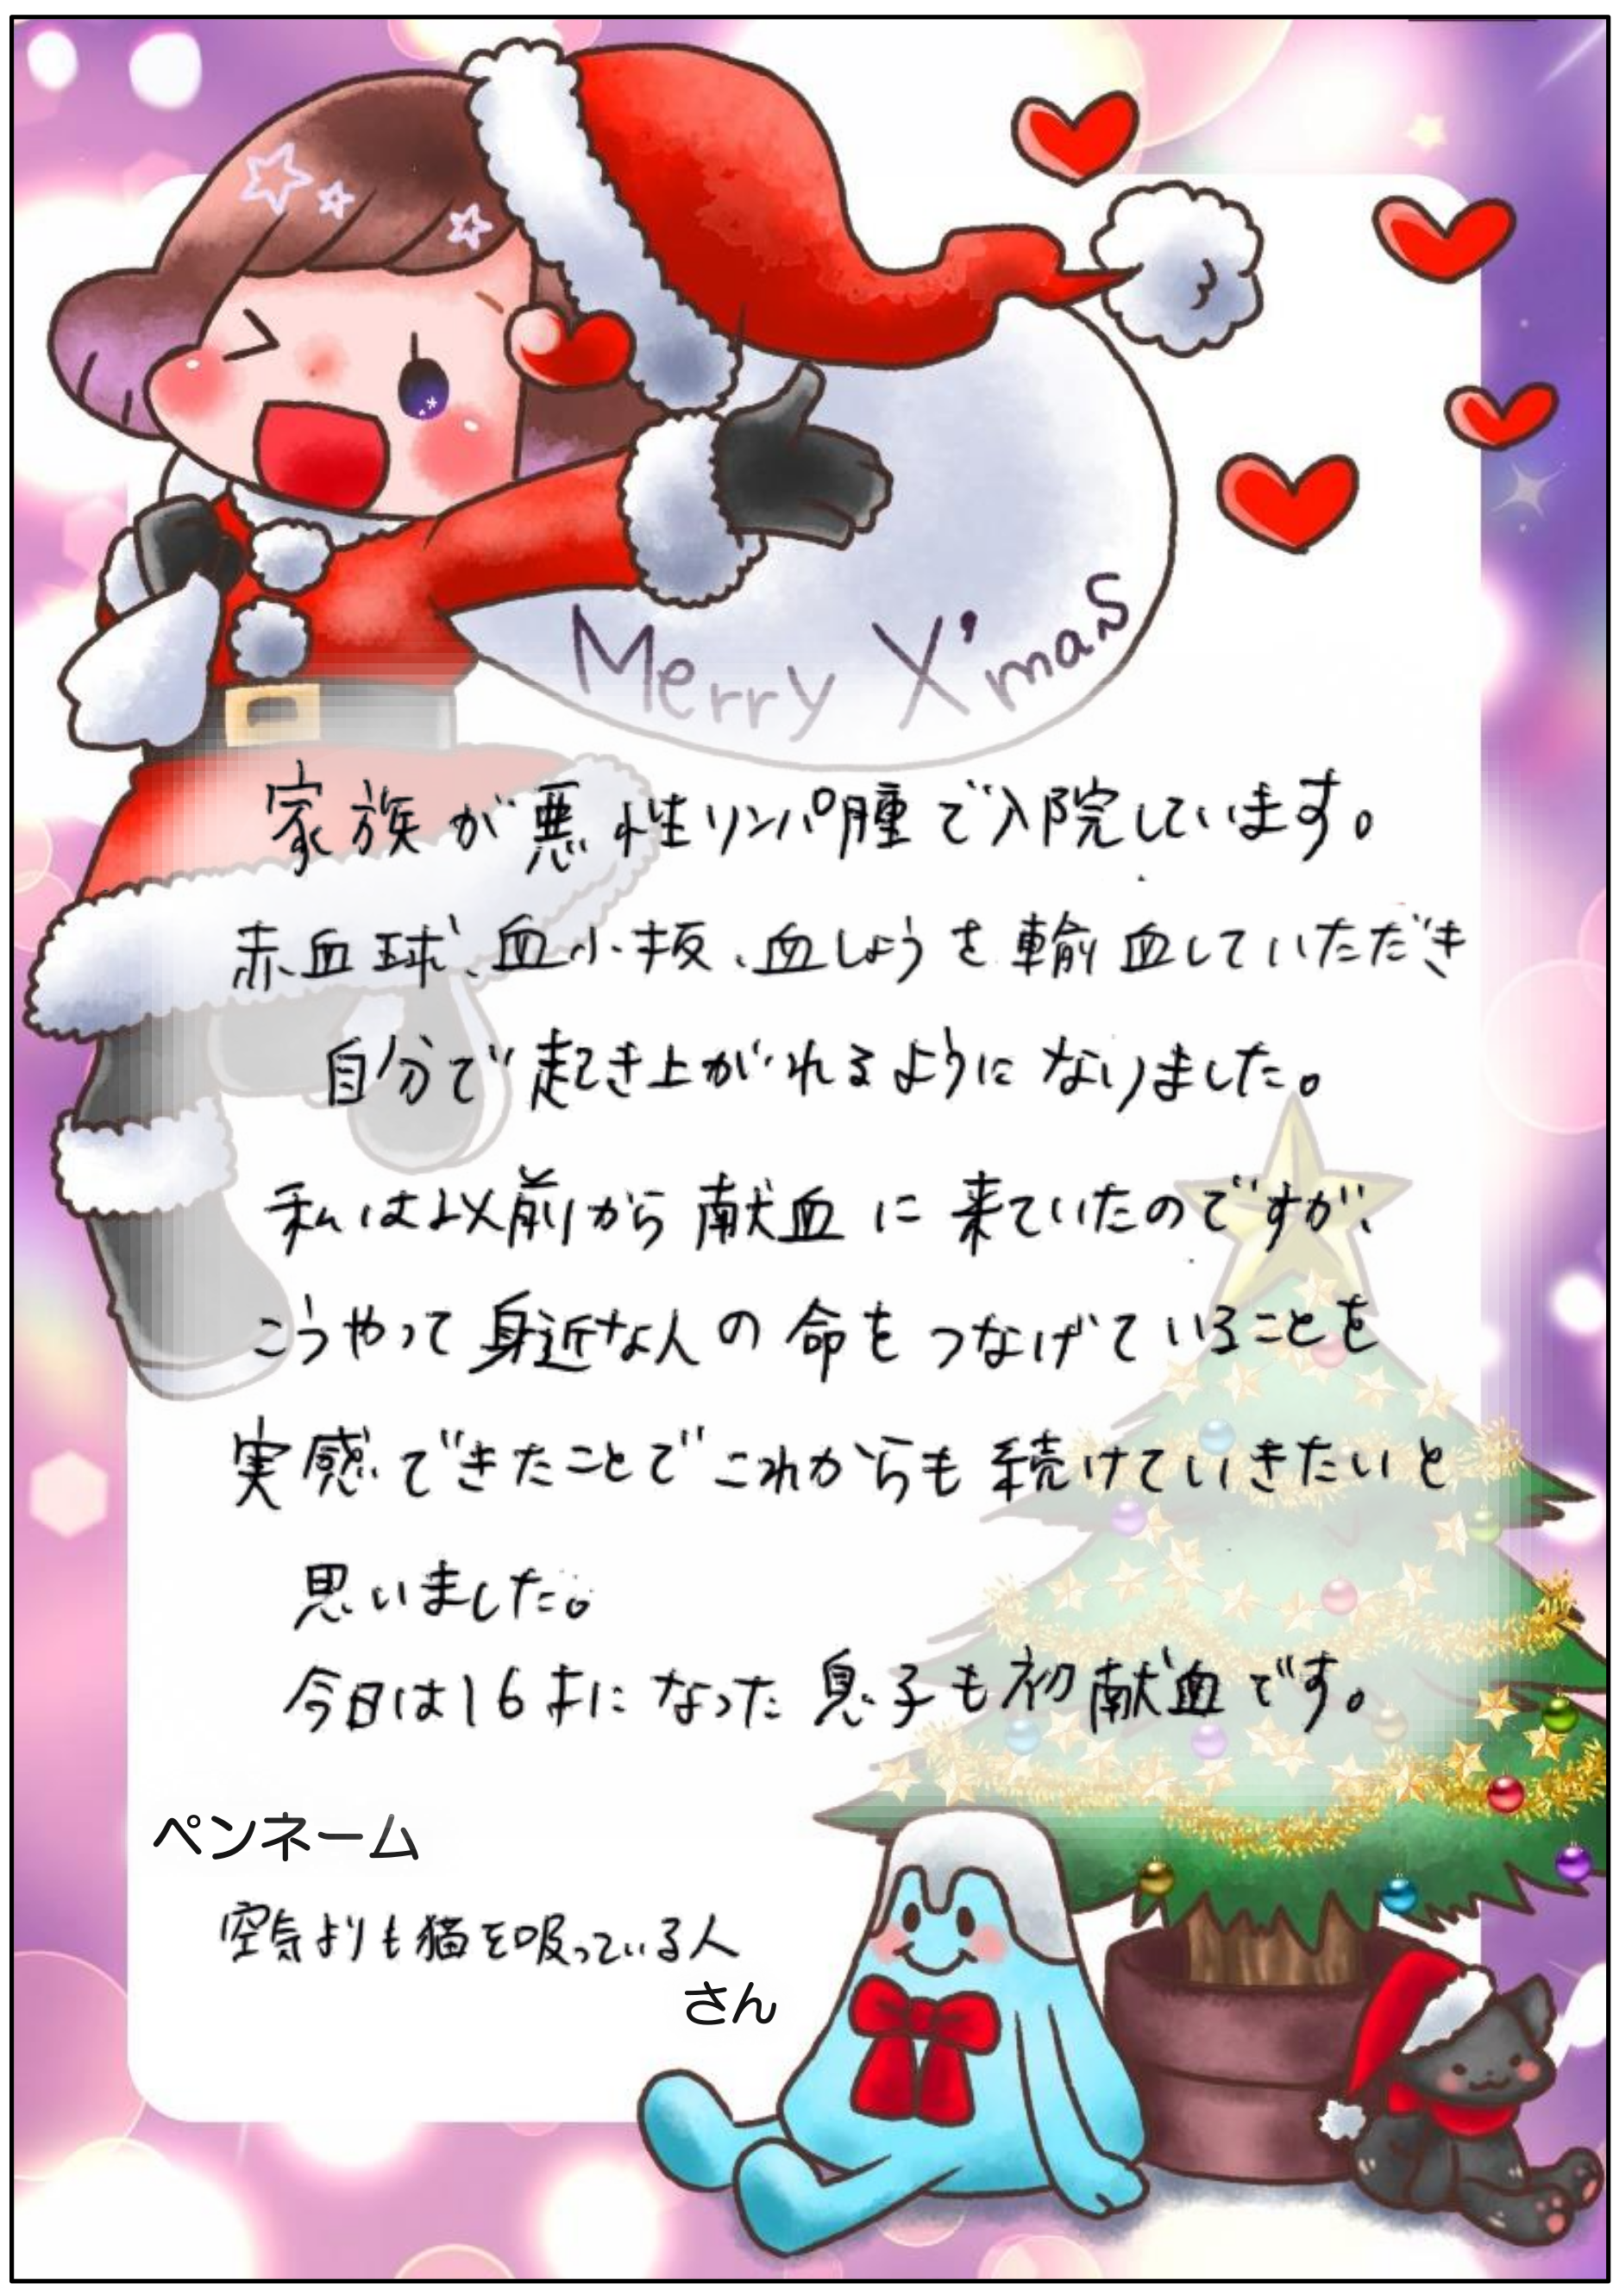 Merry X'mas
家族が悪性リンパ腫で入院しています。
赤血球、血小板、血しょうを輸血していただき
自分で起き上がれるようになりました。
私は以前から献血に来ていたのですが、
こうやって身近な人の命をつなげていることを
実感できたことでこれからも続けていきたいと
思いました。
今日は16才になった息子も初献血です。
ペンネーム
空気よりも猫を吸っている人
さん